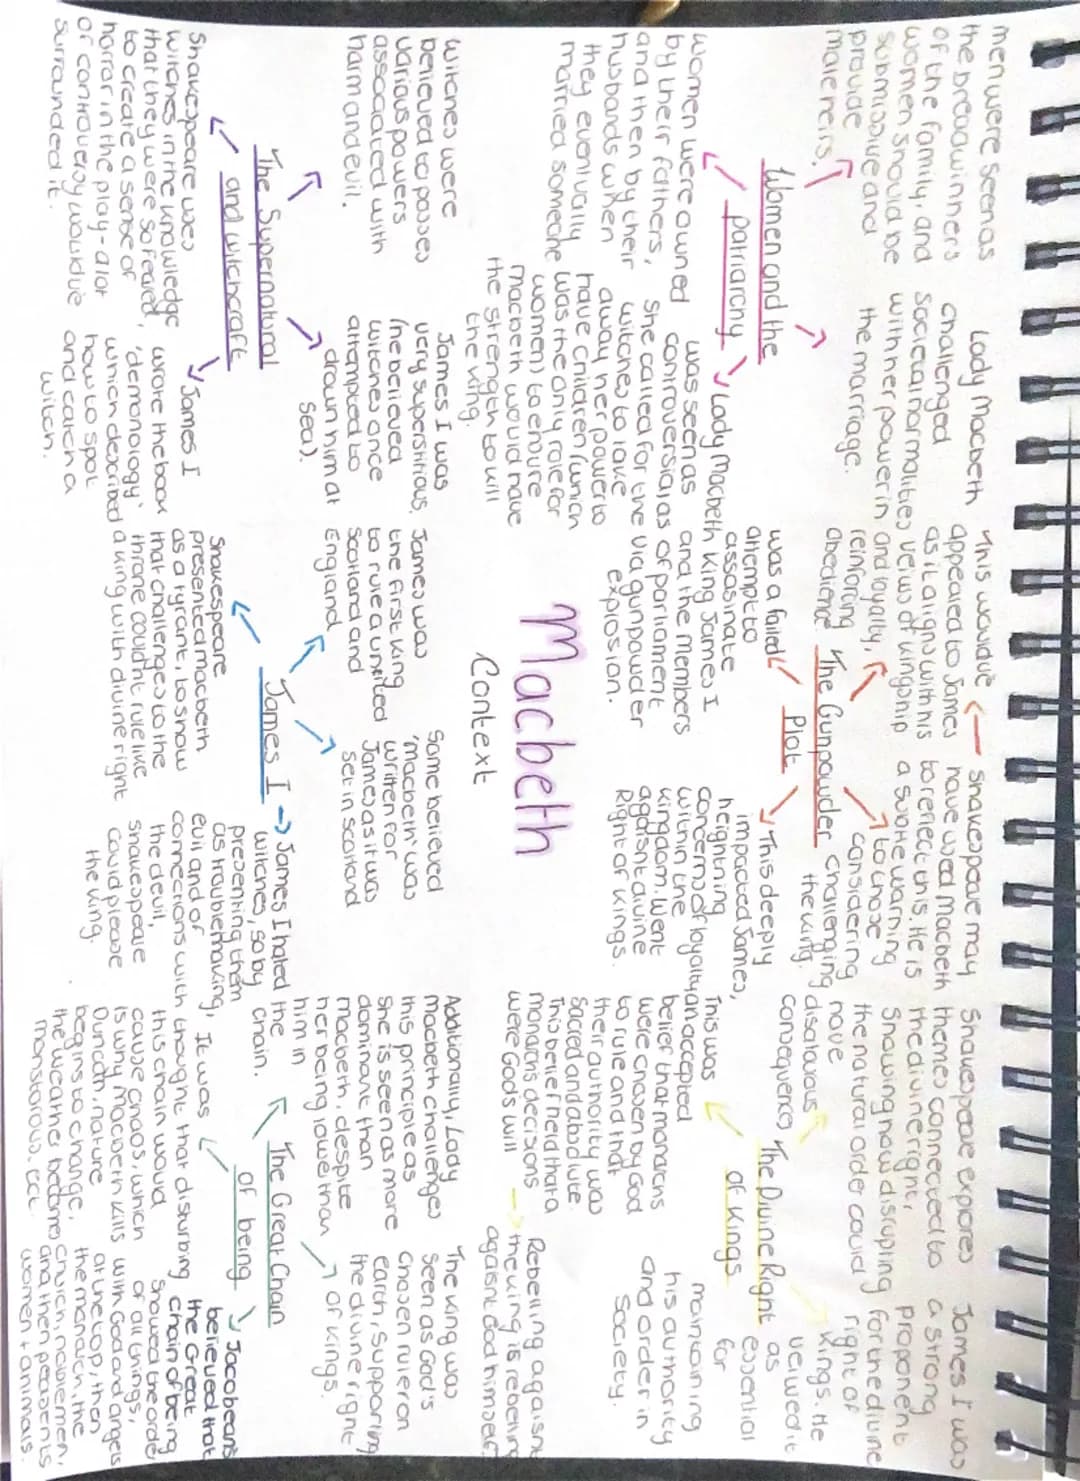 Macbeth
Context
Women and the
patriarchy
men were seen as
the breawinners
of the family, and
women should be
submissive and
provide
male heirs.
Lady Macbeth
challenged
societal normalities
with her power in
the marriage.
women were owned
by their fathers,
and then by their
husbands when
they eventually
married someone
Lady Macbeth
was seen as
controversial as
she called for the
witches to take
away her power to
have children (which
was the only role for
women) to ensure
macbeth would have
the strength to kill
the king.
The Gunpowder
Plot
was a failed
attempt to
assasinate
King James I
and the members
of parliament
via gunpowder
explosion.
This would've
appealed to James
as it aligns with his
veiws of kingship
and loyalty,
reinforing
obedience
Shakespeare may
have used Macbeth
to reflect this. He is
a subtle warning
to those
considering
challenging
the king.
This deeply
impacted James,
heightning
concerns of loyalty
within the
kingdom. Went
against divine
Right of Kings.
The Divine Right
of Kings
Shakespeare explores
themes connected to
the divine right,
Showing how disrupting
the natural order could
have
disatrous
consequences
James I was
a strong
proponent
for the divine
right of
kings. He
veiwed it
as
essential
for
maintaining
his authority
and order in
society.
This was
an accepted
belief that monarchs
were chosen by God
to rule and that
their authority was
sacred and absolute.
This belief held that a
monarch's decisions
were God's will
Rebelling agaisnt
the king is rebelling
agaisnt God himself
The Supernatural
and witchcraft
witches were
believed to posses
various powers
associated with
harm and evil.
James I was
very superstitious,
(he believed
witches once
attempted to
drown him at
sea).
Shakespeare used
witches in the knowledge
that they were so feared,
to create a sense of
horror in the play - a lot
of controversy would've
surrounded it.
James I
wrote the book
'demonology'
which described
how to spot
and catch a
witch.
James I
James was
the first king
to rule a united
Scotland and
England
Some believed
'Macbeth' was
written for
James as it was
set in scotland
Shakespeare
presented macbeth
as a tyrant, to show
that challenges to the
throne couldn't rule like
a king with divine right
James I hated
witches, so by
presenting them
as troublemaking,
evil and of
connections with
the devil,
shakespeare
could please
the king.
The Great Chain
of being
Additionally, Lady
Macbeth challenges
this principle as
she is seen as more
dominant than
macbeth, despite
her being lower than
him in
the
chain.
The king was
seen as God's
chosen ruler on
earth, supporting
the divine right
of kings.
It was
thought that disturbing
this chain would
cause chaos, which
is why Macbeth kills
Duncan, nature
begins to change,
the weather becomes
monstorous, ect.
Jacobeans
believed that
the Great
chain of being
showed the order
of all things,
with God and angels
at the top, then
the monarch, the
church, noblemen,
and then peasents
women + animals.